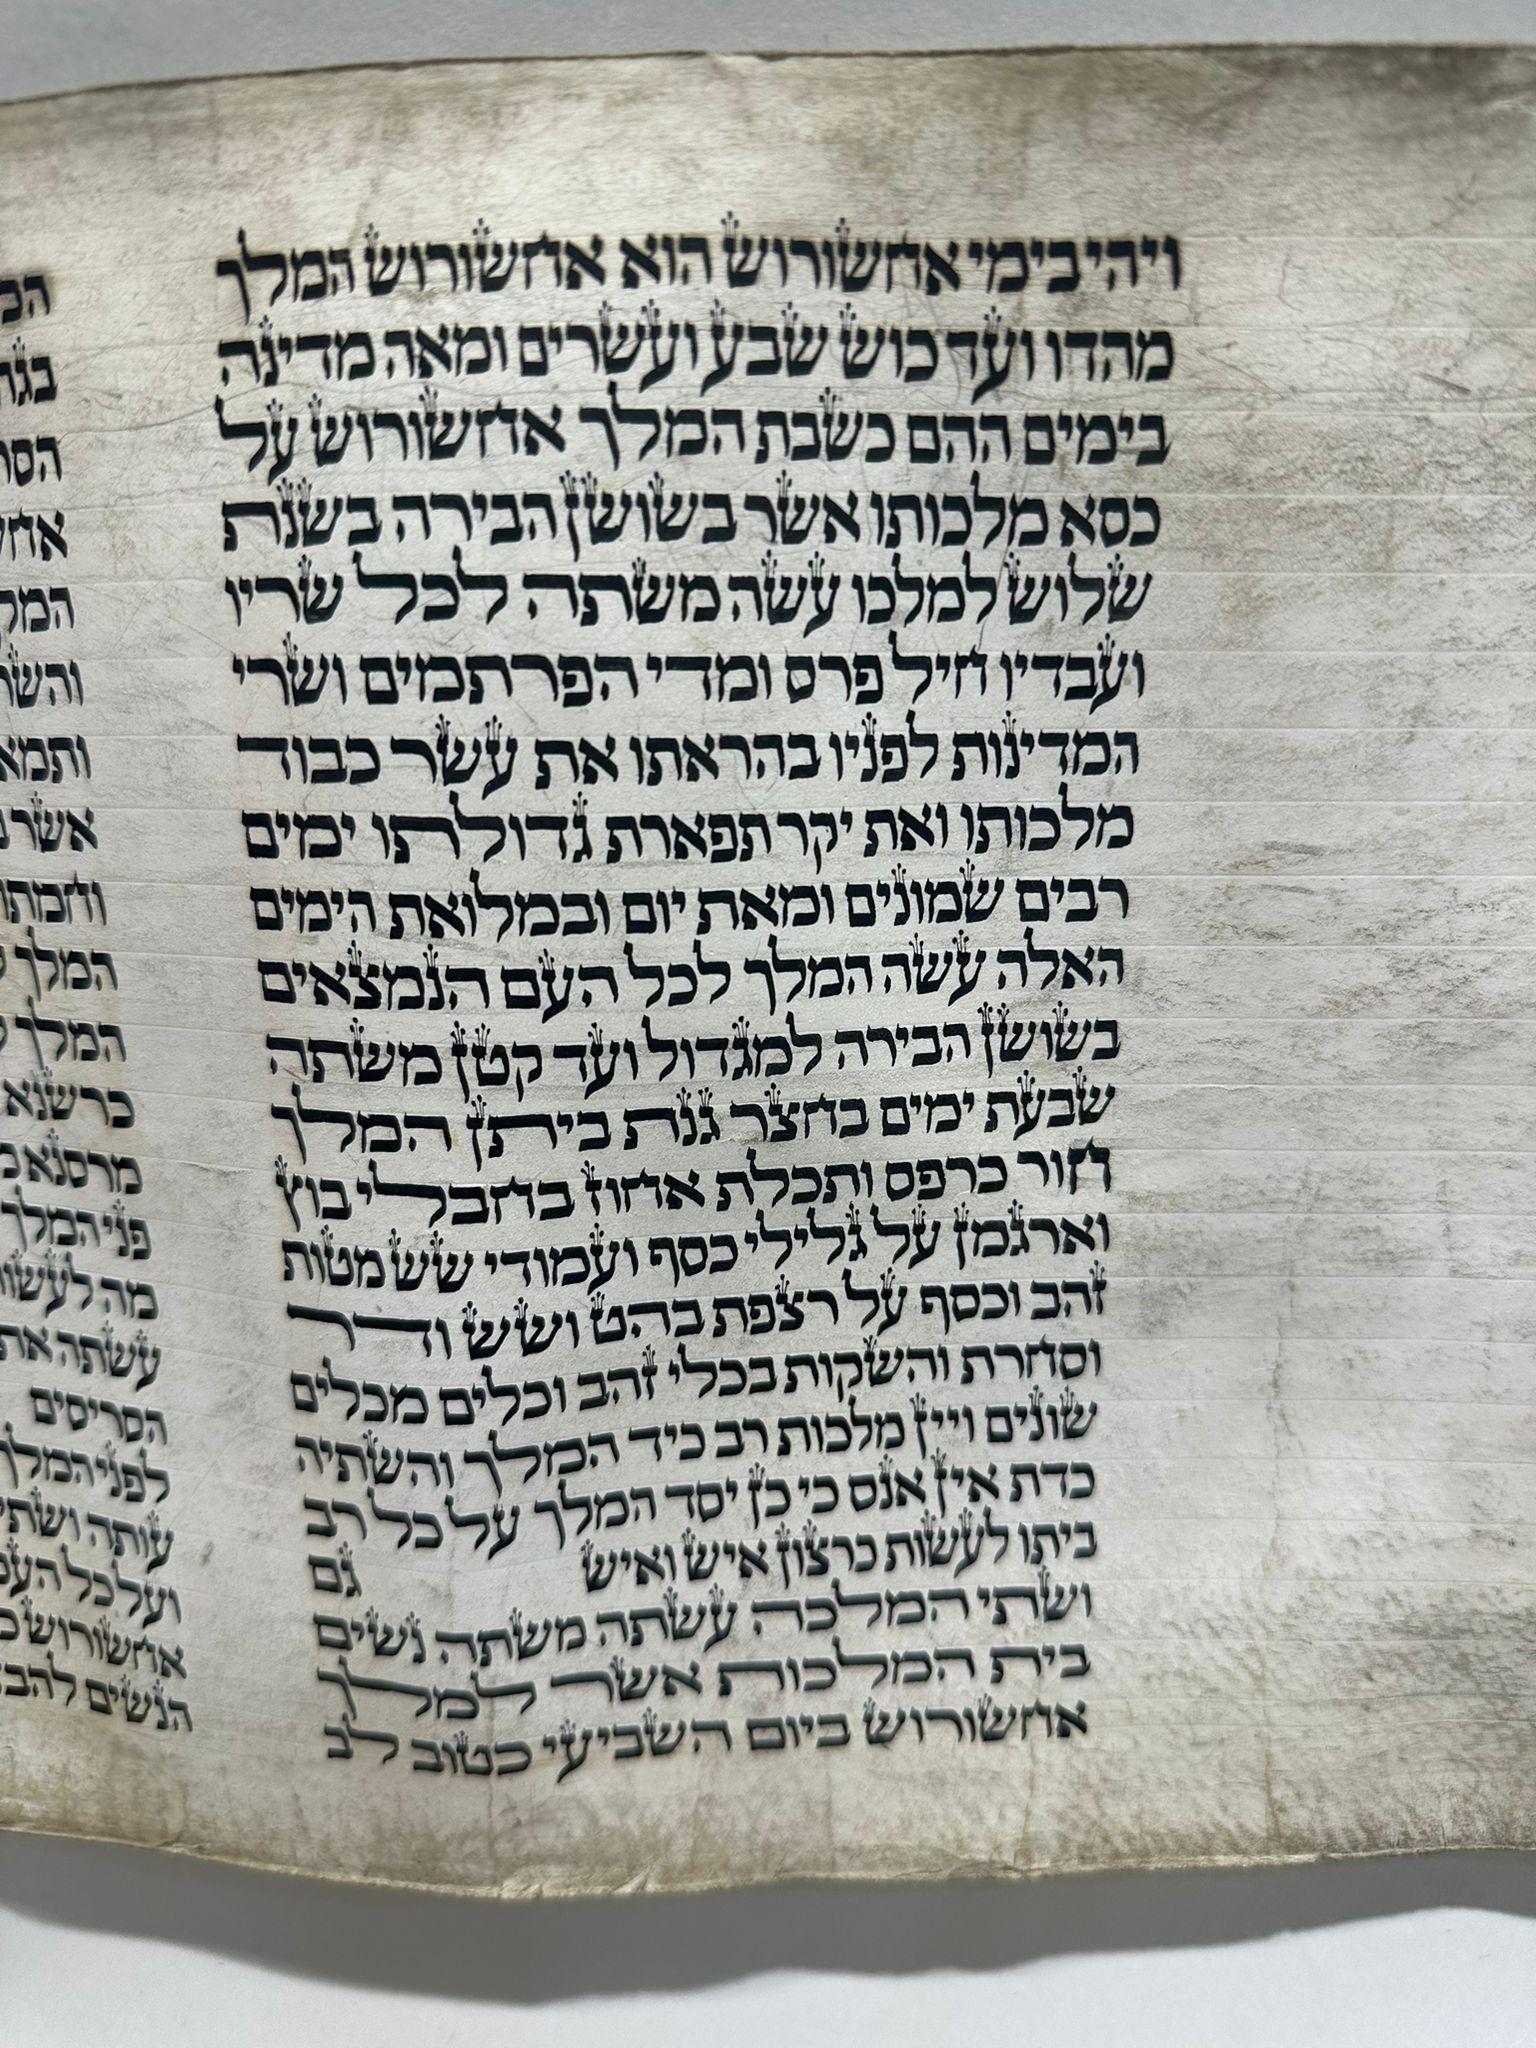 ויהי בימי אחשורוש הוא אחשורוש המלך
מהדו ועד כוש שבע ועשרים ומאה מדינה
בימים ההם כשבת המלך אחשורוש על
כסא מלכותו אשר בשושן הבירה בשנת
שלוש למלכו עשה משתה לכל שריו
ועבדיו חיל פרס ומדי הפרתמים ושרי
המדינות לפניו בהראתו את עשר כבוד
מלכותו ואת יקר תפארת גדולתו ימים
רבים שמונים ומאת יום ובמלואת הימים
האלה עשה המלך לכל העם הנמצאים
בשושן הבירה למגדול ועד קטן משתה
שבעת ימים בחצר גנת ביתן המלך
חור כרפס ותכלת אחוז בחבלי בוץ
וארגמן על גלילי כסף ועמודי שש מטות
זהב וכסף על רצפת בהט ושש ודר
וסחרת והשקות בכלי זהב וכלים מכלים
שונים ויין מלכות רב כיד המלך והשתיה
כדת אין אנס כי כן יסד המלך על כל רב
ביתו לעשות כרצון איש ואיש גם
ושתי המלכה עשתה משתה נשים
בית המלכות אשר למלך
אחשורוש ביום השביעי כטוב לב
אשר
המלך
המלך
כרשנא
מרסנא
פני המלך
מה לעשות
עשתה את
הסריסים
לפני המלך
עותה ושתי
ועל כל
אחשורוש
הנשים